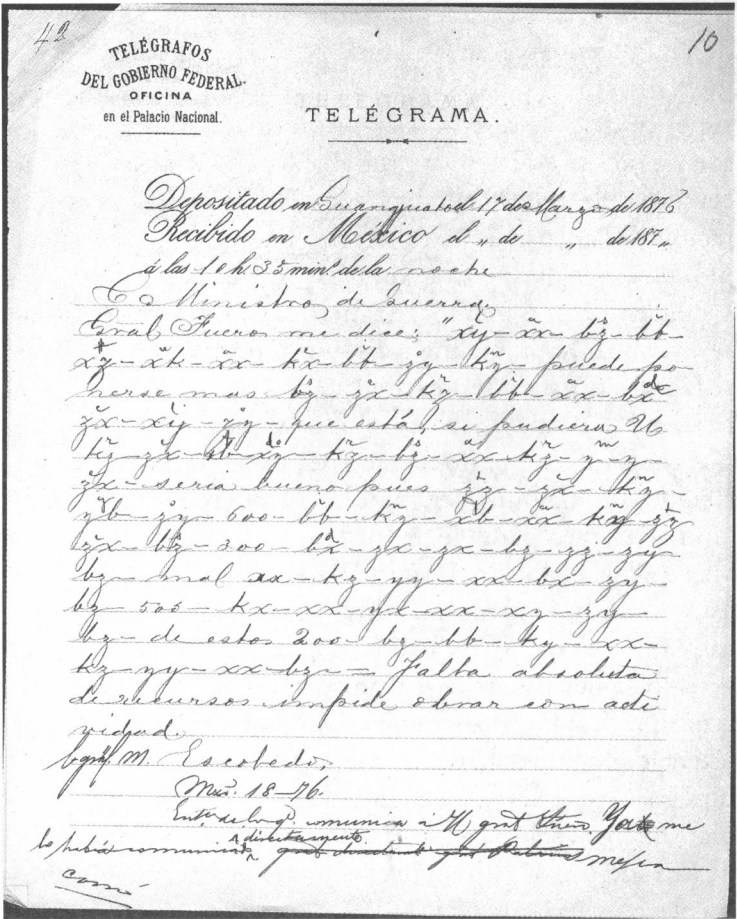 42
10
TELÉGRAFOS
DEL GOBIERNO FEDERAL.
OFICINA
en el Palacio Nacional.
TELÉGRAMA.
Depositado en Guanajuato el 17 de Marzo de 1876
Recibido en México el „ de „ de 187 „
á las 10 h 35 min.s de la noche
C. Ministro de Guerra,
Gral Fueros me dice: "xy - xx - bz - bb -
xz - xk - xx - kx - bb - zy - kz - puede po
nerse mas bz - zx - kz - bb - xx - bx
zx - xy - zy - que está, si pudiera U
kz - zx - - xy - kz - bz - xx - kz - y - y -
zx - seria bueno pues zz - zx - kz -
yb - zy - 600 - bb - kz - xb - xx - kz - zz
zx - bz - 300 - bx - zx - zx - bz - zz - zy
bz - mal xx - kz - yy - xx - bx - zy -
bz - 500 - kx - xx - yx - xx - xy - zy -
bz - de estos 200 - bz - bb - ky - xx -
kz - yy - xx - bz - = Falta absoluta
de recursos impide obrar con acti
vidad.
M. Escobedo,
Mzo. 18-76.
comunica a gral me
lo habia directamente